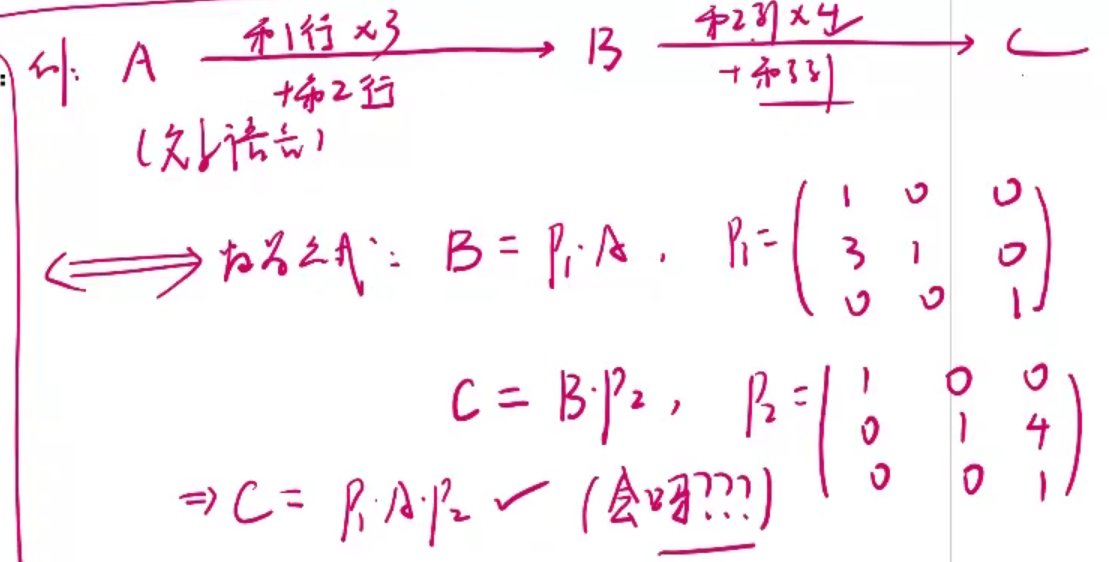 例: A 第1行 ×3 +第2行 → B 第2列 ×4 +第3列 → C
(文字语言)
⟺ : B = P₁·A, P₁ = ( 1 0 0
3 1 0
0 0 1 )
C = B·P₂, P₂ = ( 1 0 0
0 1 4
0 0 1 )
⇒ C = P₁·A·P₂ ✓ (会吗???)